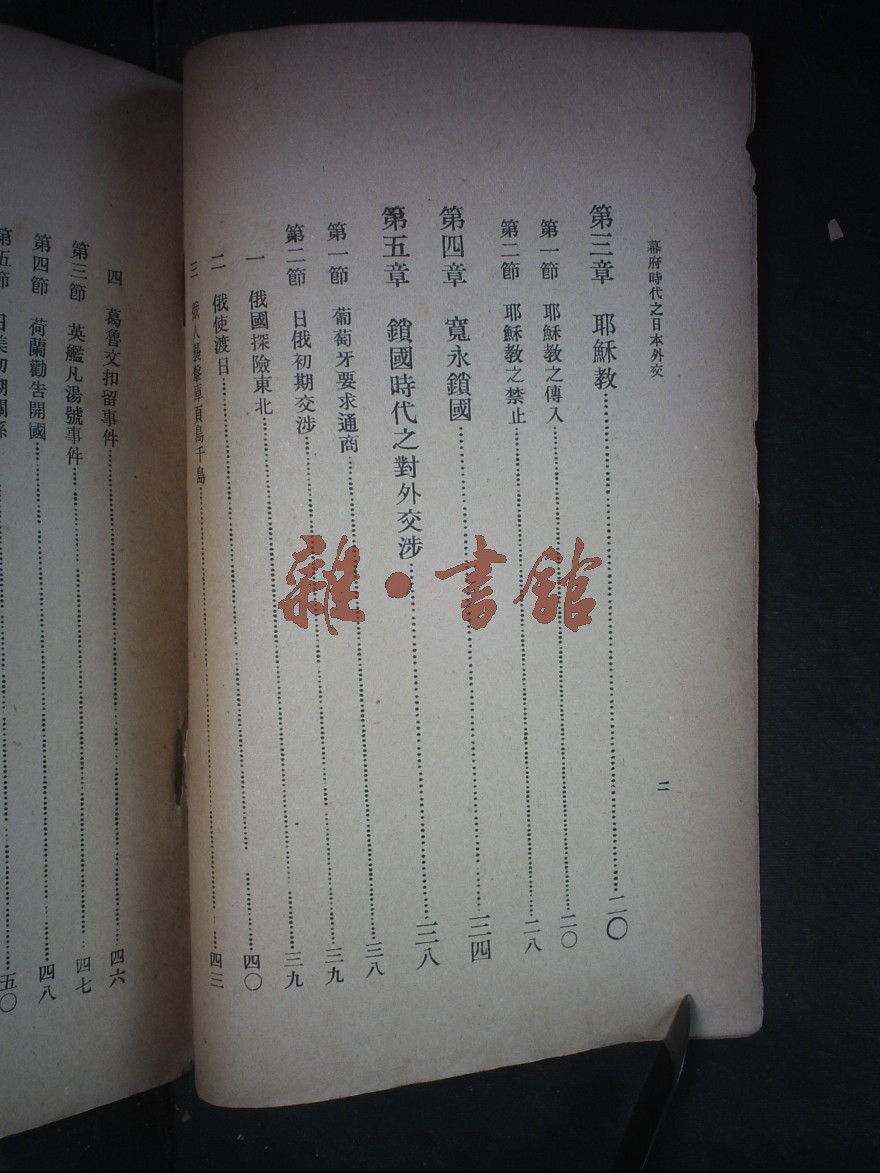 幕府時代之日本外交 二
第三章 耶穌教……二〇
第一節 耶穌教之傳入……二〇
第二節 耶穌教之禁止……二八
第四章 寬永鎖國……三四
第五章 鎖國時代之對外交涉……三八
第一節 葡萄牙要求通商……三八
第二節 日俄初期交涉……三九
一 俄國探險東北……三九
二 俄使渡日……四〇
三 俄人襲擊庫頁島千島……四三
四 葛魯文扣留事件……四六
第三節 英艦凡湯號事件……四七
第四節 荷蘭勸告開國……四八
第五節 日美初期關係……五〇
雜·書館